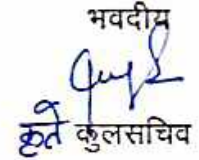 भवदीय
कृते कुलसचिव